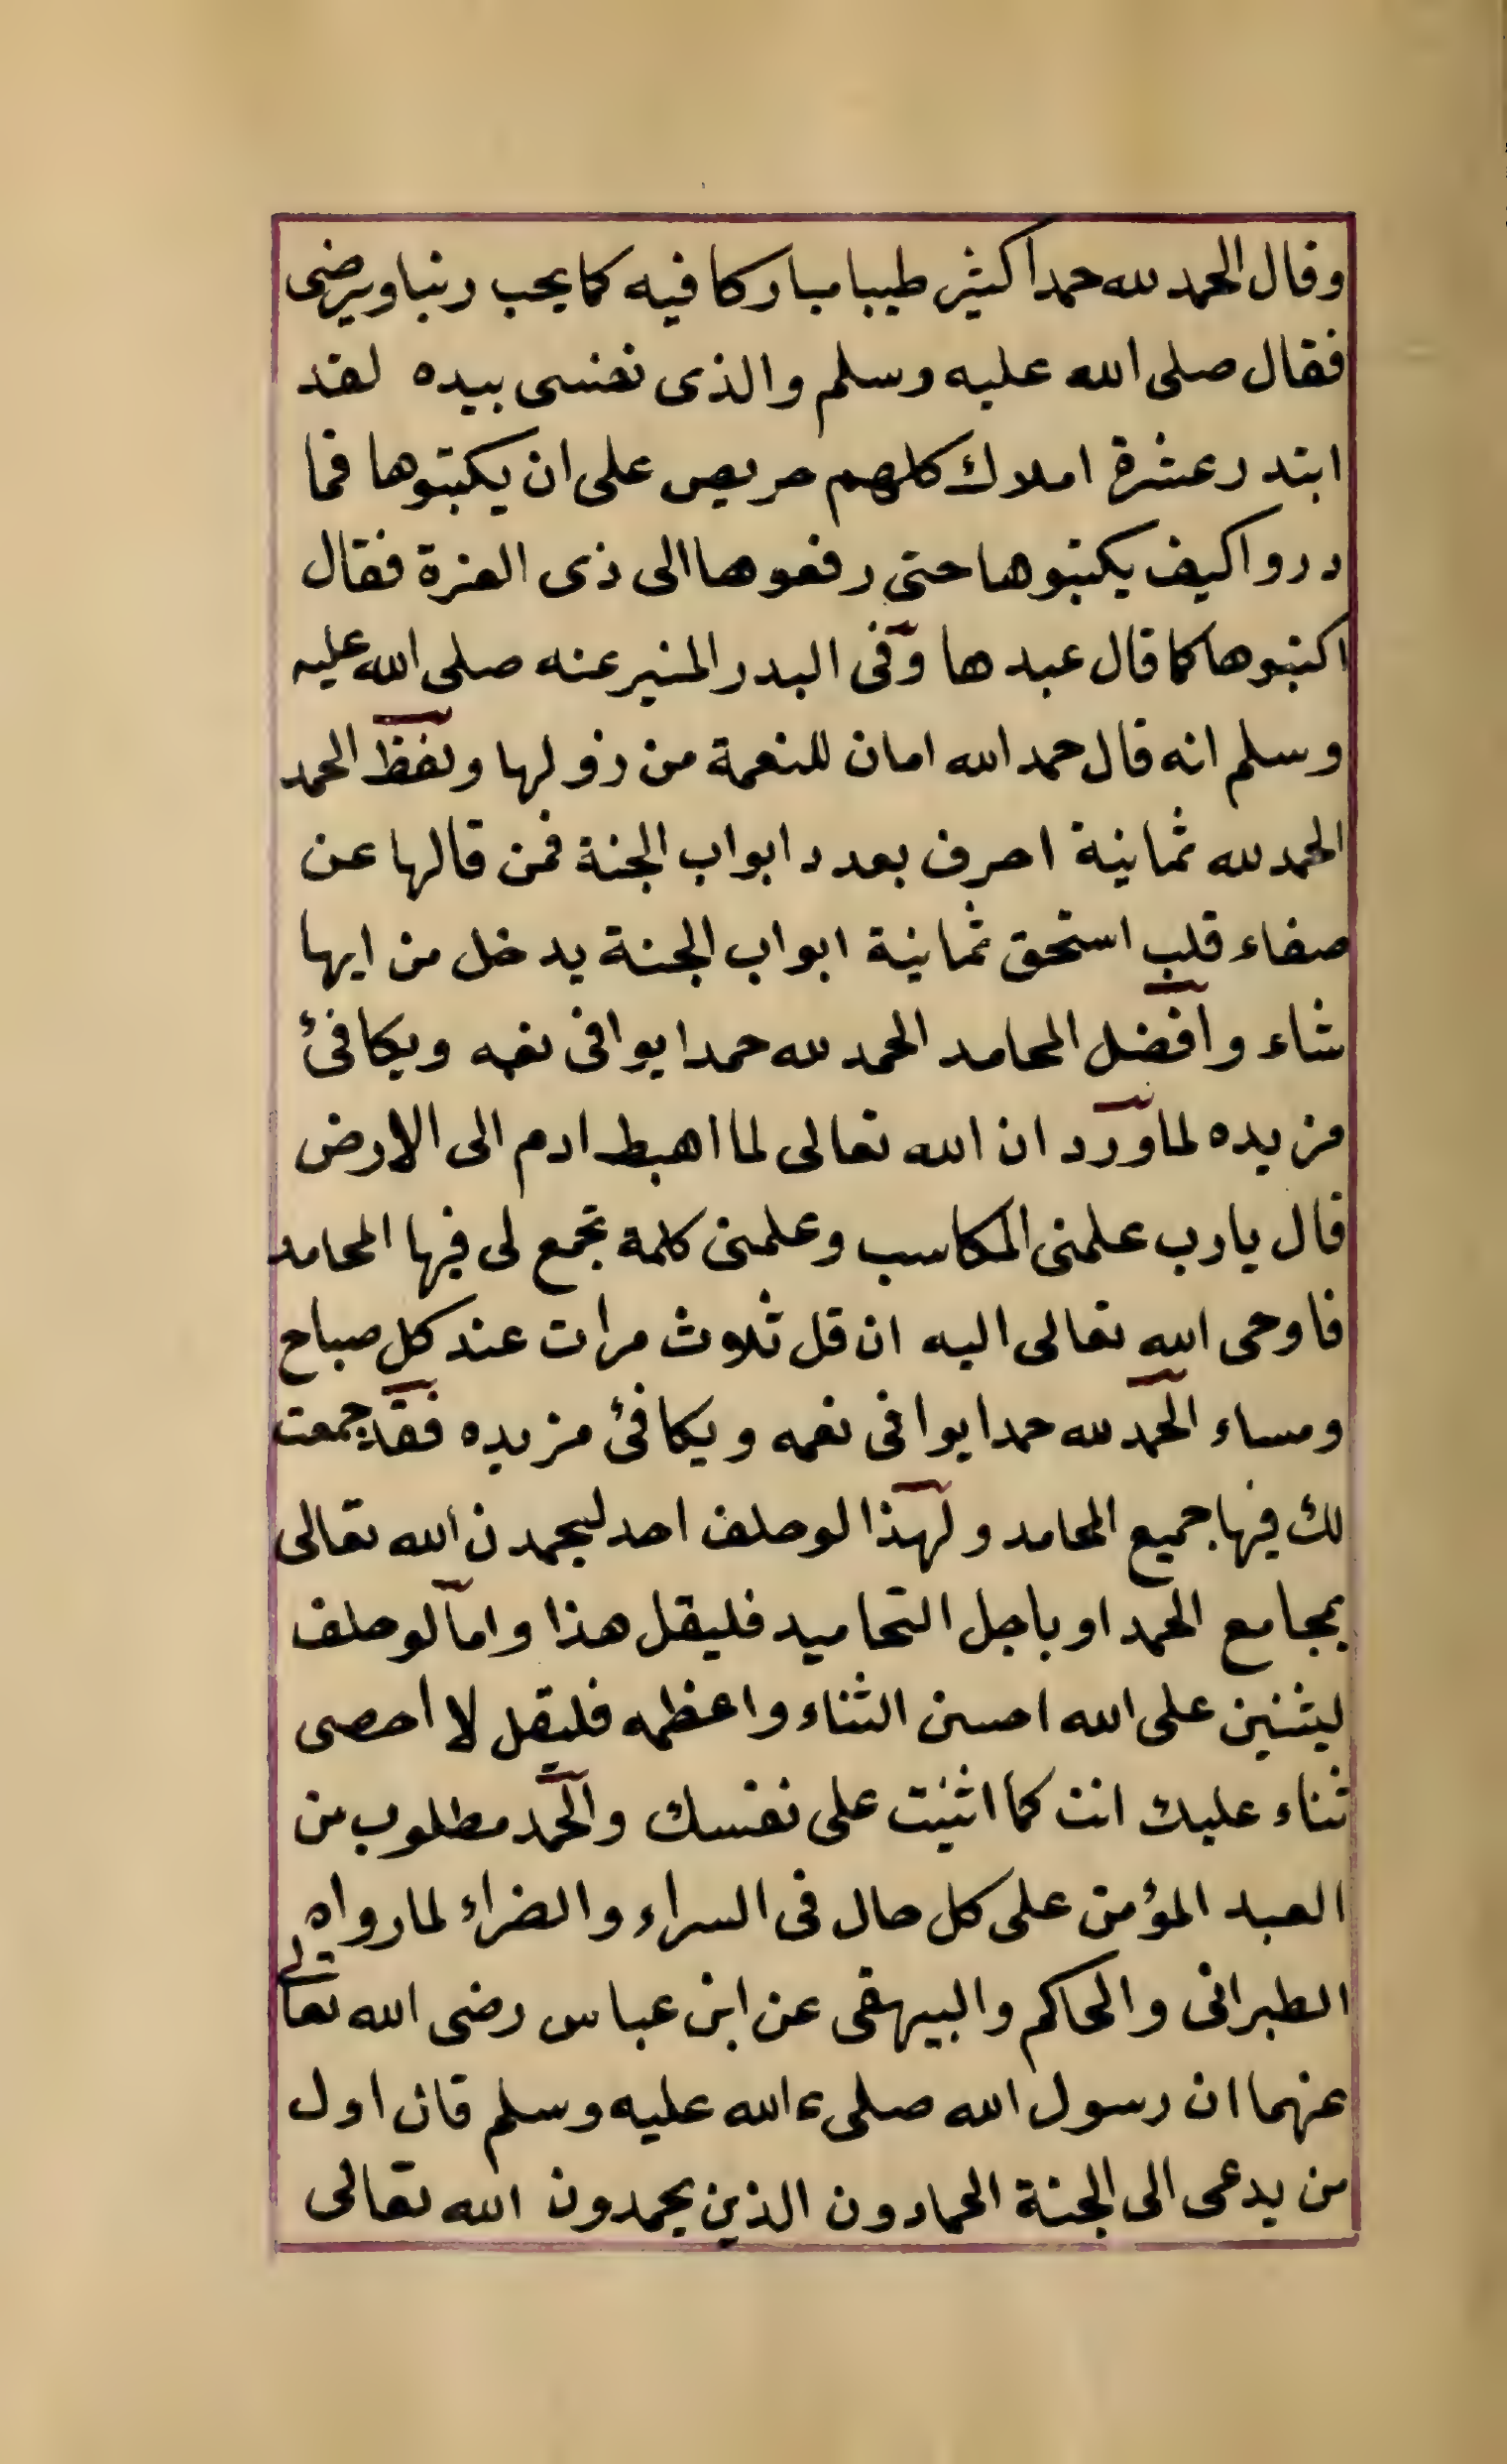 وقال الحمد لله حمدا كثير طيبا مباركا فيه كما يحب ربنا ويرضى
فقال صلى الله عليه وسلم والذى نفسى بيده لقد
ابتدر عشرة املاك كلهم حريص على ان يكتبوها فما
دروا كيف يكتبوها حتى رفعوها الى ذى العزة فقال
اكتبوها كما قال عبدها وفى البدر المنير عنه صلى الله عليه
وسلم انه قال حمد الله امان للنعمة من زولها ولفظ الحمد
الحمد لله ثمانية احرف بعدد ابواب الجنة فمن قالها عن
صفاء قلب استحق ثمانية ابواب الجنة يدخل من ايها
شاء وافضل المحامد الحمد لله حمدا يوافى نعمه ويكافئ
مزيده لما ورد ان الله تعالى لما اهبط ادم الى الارض
قال يارب علمنى المكاسب وعلمنى كلمة تجمع لى فيها المحامد
فاوحى الله تعالى اليه ان قل ثلاث مرات عند كل صباح
ومساء الحمد لله حمدا يوافى نعمه ويكافئ مزيده فقد جمعت
لك فيها جميع المحامد ولهذا لو حلف احد ليحمدن الله تعالى
بمجامع الحمد او باجل التحاميد فليقل هذا واما لو حلف
ليثنين على الله احسن الثناء واعظمه فليقل لا احصى
ثناء عليك انت كما اثنيت على نفسك والحمد مطلوب من
العبد المؤمن على كل حال فى السراء والضراء لما رواه
الطبرانى والحاكم والبيهقى عن ابن عباس رضى الله تعالى
عنهما ان رسول الله صلى الله عليه وسلم قال اول
من يدعى الى الجنة الحمادون الذين يحمدون الله تعالى